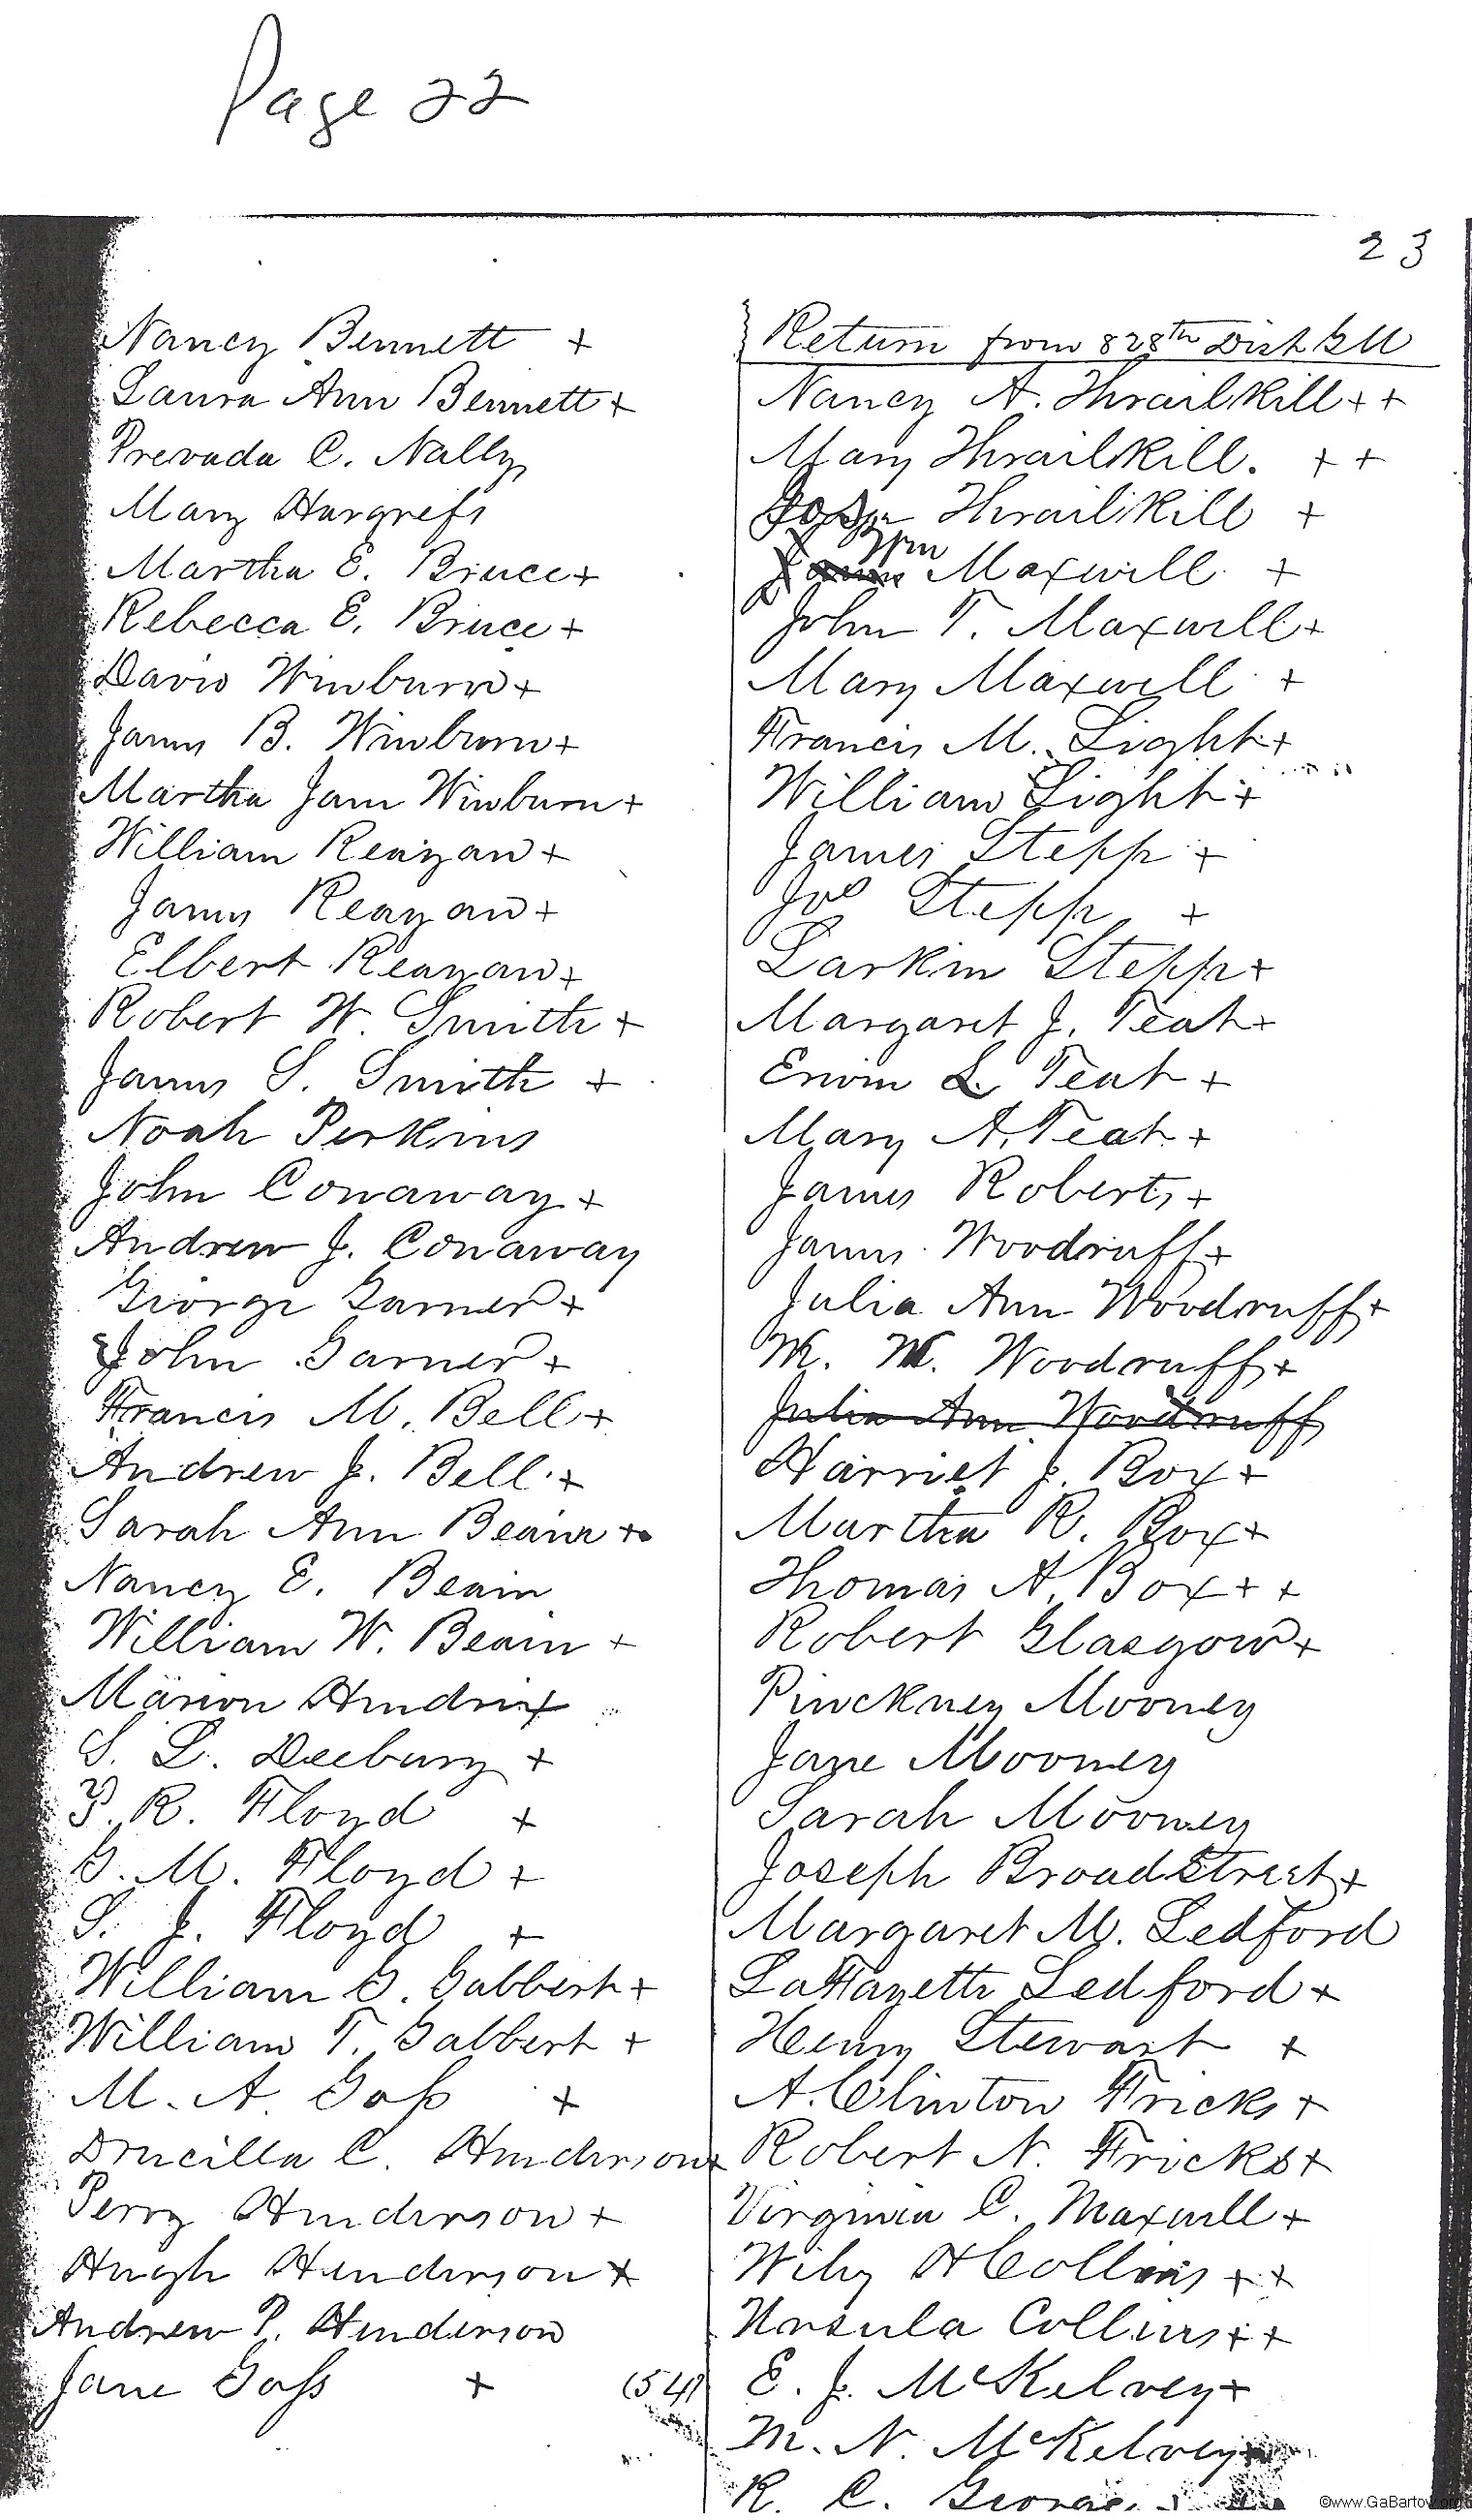 Page 22
23
Nancy Bennett +
Laura Ann Bennett +
Prevada C. Nally
Mary Hargrefs
Martha E. Bruce +
Rebecca E. Bruce +
David Winburn +
James B. Winburn +
Martha Jane Winburn +
William Reagan +
James Reagan +
Elbert Reagan +
Robert W. Smith +
James S. Smith +
Noah Perkins
John Conaway +
Andrew J. Conaway
George Garner +
John Garner +
Francis M. Bell +
Andrew J. Bell +
Sarah Ann Beain +
Nancy E. Beain
William W. Beain +
Marion Hendrix
S. L. Deebury +
P. R. Floyd +
G. M. Floyd +
S. J. Floyd +
William G. Gabbert +
William T. Gabbert +
M. A. Goss +
Drucilla C. Henderson +
Perry Henderson +
Hugh Henderson +
Andrew P. Henderson
Jane Goss + (54)
Return from 828th Dist GM
Nancy A. Thrailkill + +
Mary Thrailkill. + +
Thrailkill +
Maxwell +
John T. Maxwell +
Mary Maxwell +
Francis M. Light +
William Light +
James Stepp +
Joe Stepp +
Larkin Stepp +
Margaret J. Teat +
Erwin L. Teat +
Mary A. Teat +
James Roberts +
James Woodruff +
Julia Ann Woodruff +
W. W. Woodruff +
Julia Ann Woodruff
Harriet J. Box +
Martha R. Box +
Thomas A. Box + +
Robert Glasgow +
Pinckney Mooney
Jane Mooney
Sarah Mooney
Joseph Broadstreet +
Margaret M. Ledford
LaFayette Ledford +
Henry Stewart +
A. Clinton Fricks +
Robert N. Fricks +
Virginia C. Maxwell +
Wiley H Collins + +
Ursula Collins + +
E. J. McKelvey +
M. N. McKelvey +
R. C. George
©www.GaBartow.org